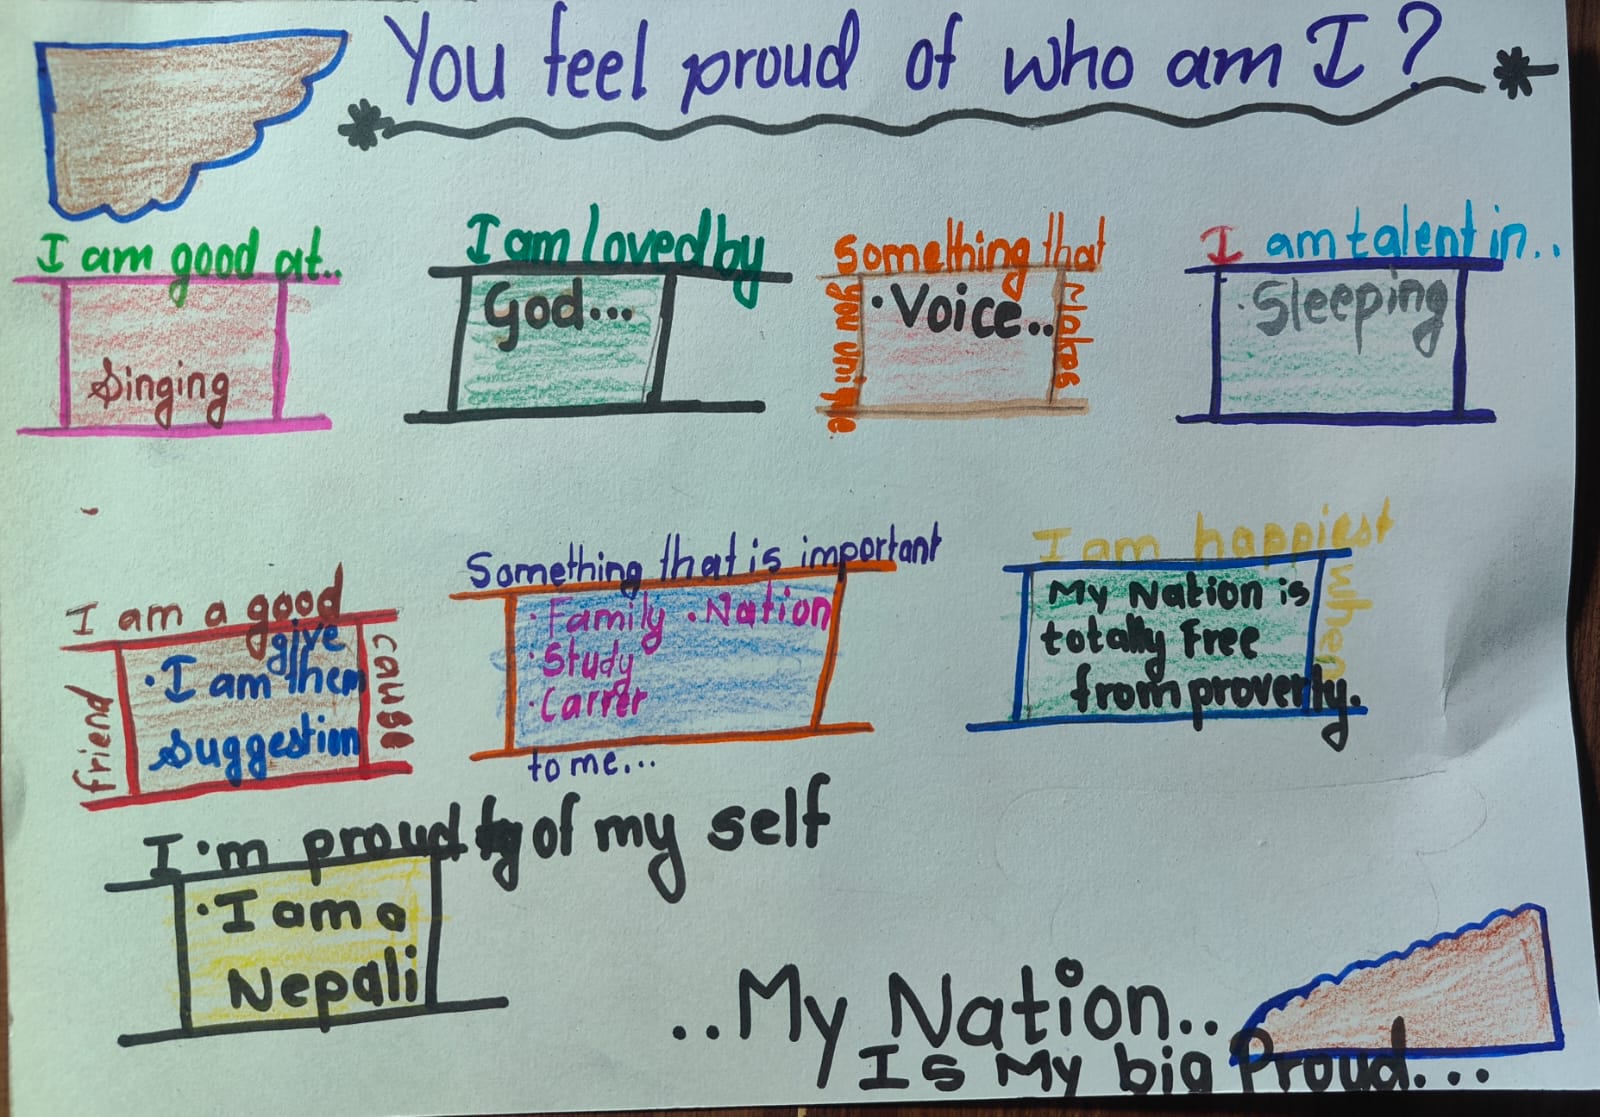 You feel proud of who am I?
I am good at..
Singing
I am loved by
God...
Something that
Makes
you unique
· Voice..
I am talent in..
· Sleeping
I am a good
friend
cause
give
· I am them
Suggestion
Something that is important
· Family · Nation
· Study
· Carrer
to me...
I am happiest
when
My Nation is
totally Free
from proverty.
I'm proud of my self
· I am a
Nepali
..My Nation..
Is My big Proud...